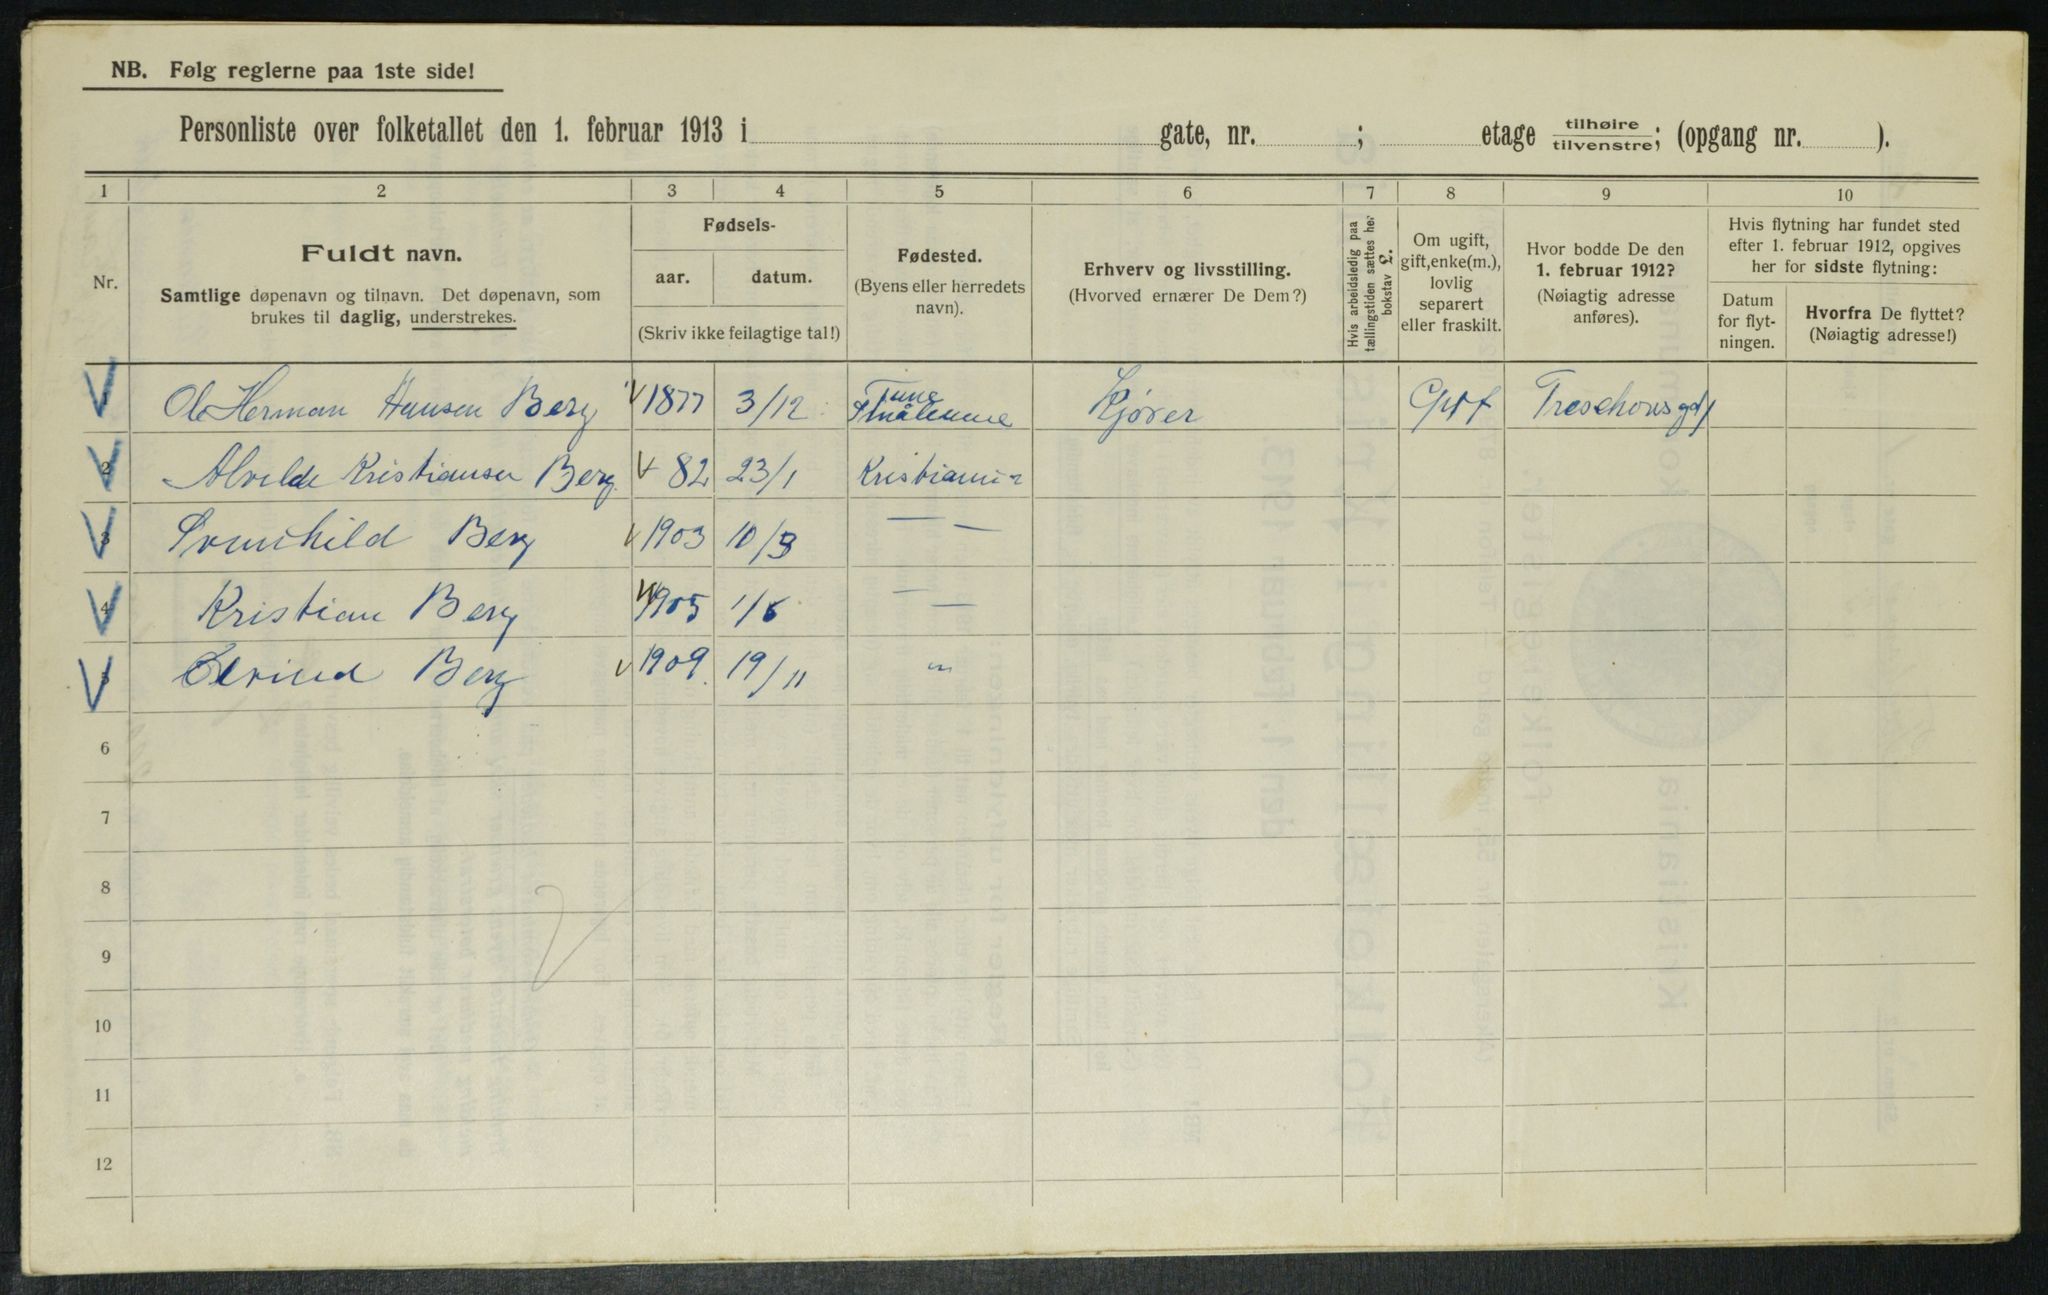 NB. Følg reglerne paa 1ste side!
Personliste over folketallet den 1. februar 1913 i gate, nr. ; etage tilhøire tilvenstre; (opgang nr. ).
1 2 3 4 5 6 7 8 9 10
Nr.
Fuldt navn.
Samtlige døpenavn og tilnavn. Det døpenavn, som
brukes til daglig, understrekes.
Fødsels-
aar. datum.
(Skriv ikke feilagtige tal!)
Fødested.
(Byens eller herredets
navn).
Erhverv og livsstilling.
(Hvorved ernærer De Dem?)
Hvis arbeidsledig paa
tællingstiden sættes her
bokstav L.
Om ugift,
gift, enke(m.),
lovlig
separert
eller fraskilt.
Hvor bodde De den
1. februar 1912?
(Nøiagtig adresse
anføres).
Hvis flytning har fundet sted
efter 1. februar 1912, opgives
her for sidste flytning:
Datum
for flyt-
ningen.
Hvorfra De flyttet?
(Nøiagtig adresse!)
Ole Herman Hansen Berg 1877 3/12 Tune Smålenene Kjører Gift Treschowsgd
2 Alvilde Kristiansen Berg 82 23/1 Kristiania
3 Svenhild Berg 1903 10/3 — —
4 Kristian Berg 1905 1/6 — —
5 Berg 1909. 19/11 "
6
7
8
9
10
11
12